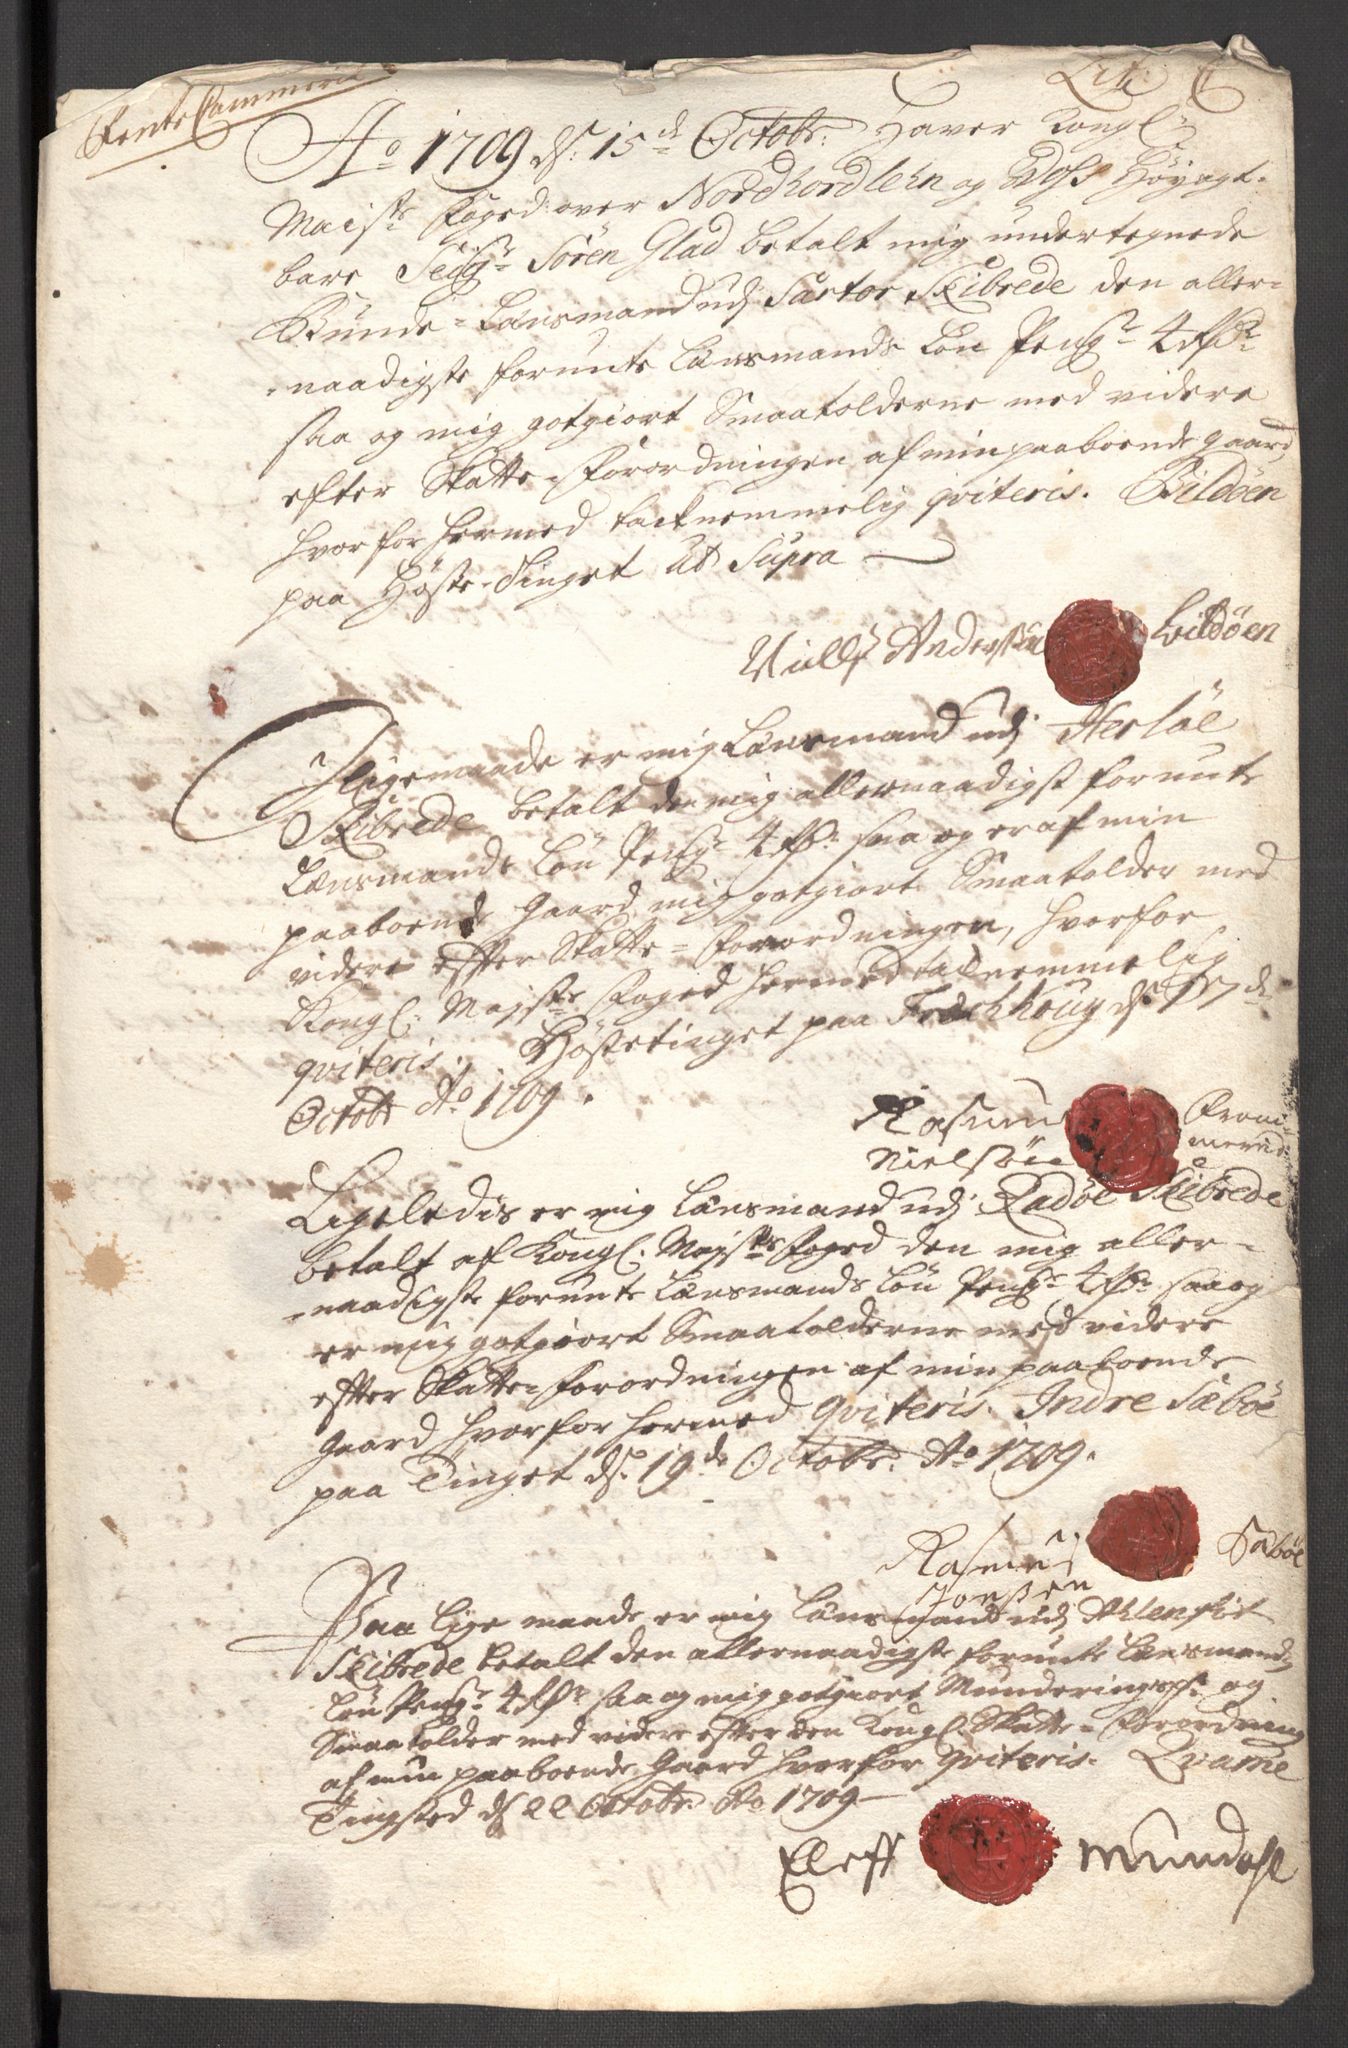 Rente Cammerit
Lit: C
Ao 1709 d: 15de Octobr: Haver Kongl:
Maists: Foged over Nordhordlehn og Voss Høyagt-
bare Seigr: Søren Glad betalt mig undertegnede
Bunde-Lænsmand udj Sartor Skibrede den aller-
naadigste forunte Lænsmands Løn Peng: 4 rdr:
saa og mig gotgiort Smaatolderne med videre
efter Skatte-Forordningen af min paaboende gaard,
hvorfor hermed tacknemmelig qviteris. Bildøen
paa Høste-Tinget ut Supra
Niells Andersøn Bildøen
Jligemaade er mig Lænsmand udj Herløe
Skibrede betalt den mig allernaadigst forunte
Lænsmands Løn Peng: 4 rdr: saa og er af min
paaboende Gaard mig gotgiort Smaatolder med
videre effter Skatte-Forordningen, hvorfor
Kongl: Majsts Foged hermed tacknemmelig
qviteris. Høstetinget paa Fræchhoug d: 17de
Octobr Ao 1709.
Rasmus
Nielsøn
Ligeledis er mig Lænsmand udj Radøe Skibrede
betalt af Kongl: Majsts Foged den mig aller-
naadigste forunte Lænsmands Løn Peng: 4 rdr: saa og
er mig gotgiort Smaatolderne med videre
effter Skatte-Forordningen af min paaboende
Gaard hvorfor hermed qviteris. Indre Sæbøe
paa Tinget d: 19de Octobr: Ao 1709.
Rasmus Sæbøe
Jonsen
Paa lige maade er mig Lænsmand udj Ahlenfit
Skibrede betalt den allernaadigste forunte Lænsmands
Løn Peng: 4 rdr: saa og mig gotgiort Munderings og
Smaatolder med videre effter den Kongl: Skatte-Forordning
af min paaboende Gaard hvorfor qviteris. Qvame
Tingsted d: 22 Octobr: Ao 1709
Eleff Mundahl